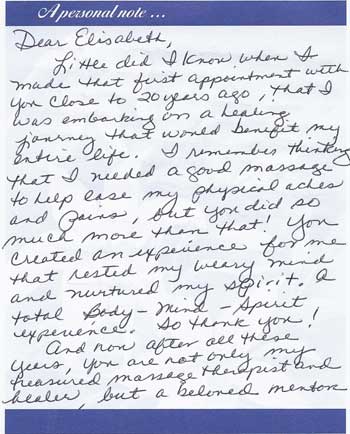 A personal note ...
Dear Elisabeth,
Little did I know when I
made that first appointment with
you close to 20 years ago, that I
was embarking on a healing
journey that would benefit my
entire life. I remember thinking
that I needed a good massage
to help ease my physical aches
and pains, but you did so
much more than that! You
created an experience for me
that rested my weary mind
and nurtured my spirit. A
total Body - Mind - Spirit
experience. So thank you!
And now after all these
years, you are not only my
treasured massage therapist and
healer, but a beloved mentor